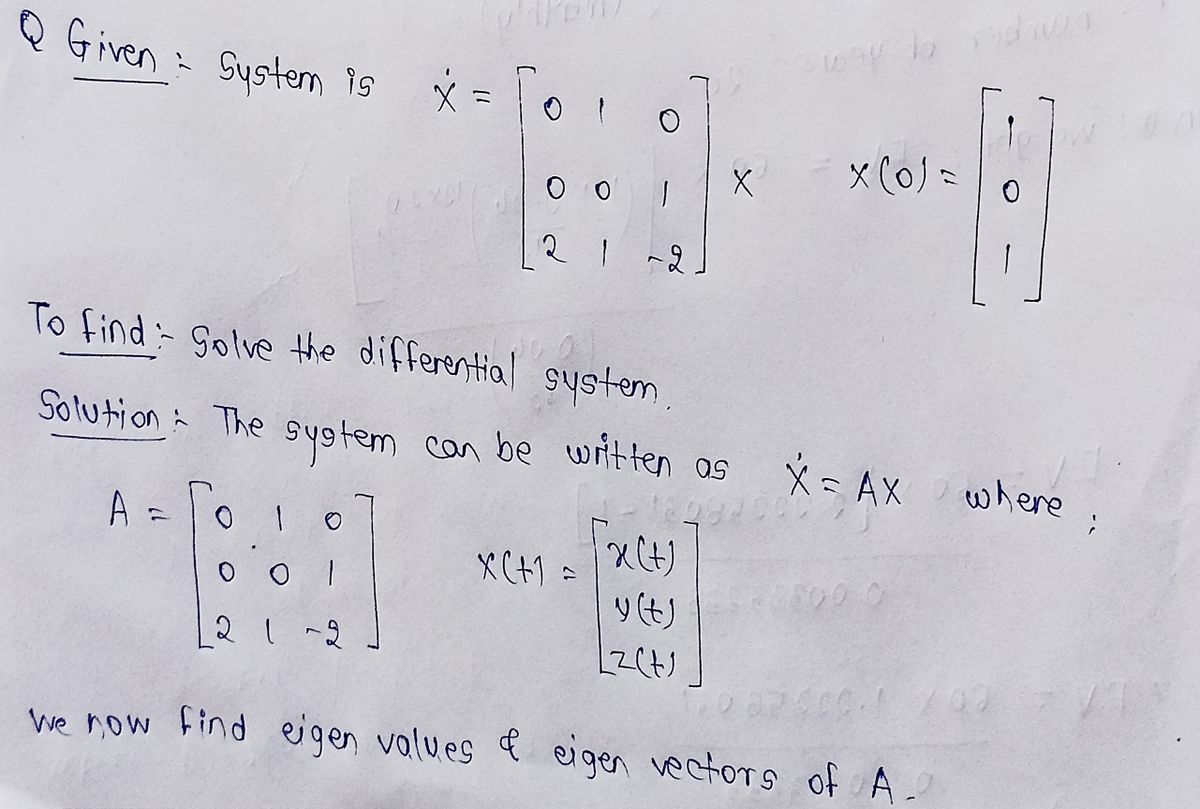 Q Given :- System is Ẋ = [0 1 0
0 0 1
2 1 -2] X X(0) = [1
0
1]
To find :- Solve the differential system.
Solution :- The system can be written as Ẋ = AX where ;
A = [0 1 0
0 0 1
2 1 -2] X(t) = [x(t)
y(t)
z(t)]
We now find eigen values & eigen vectors of A -